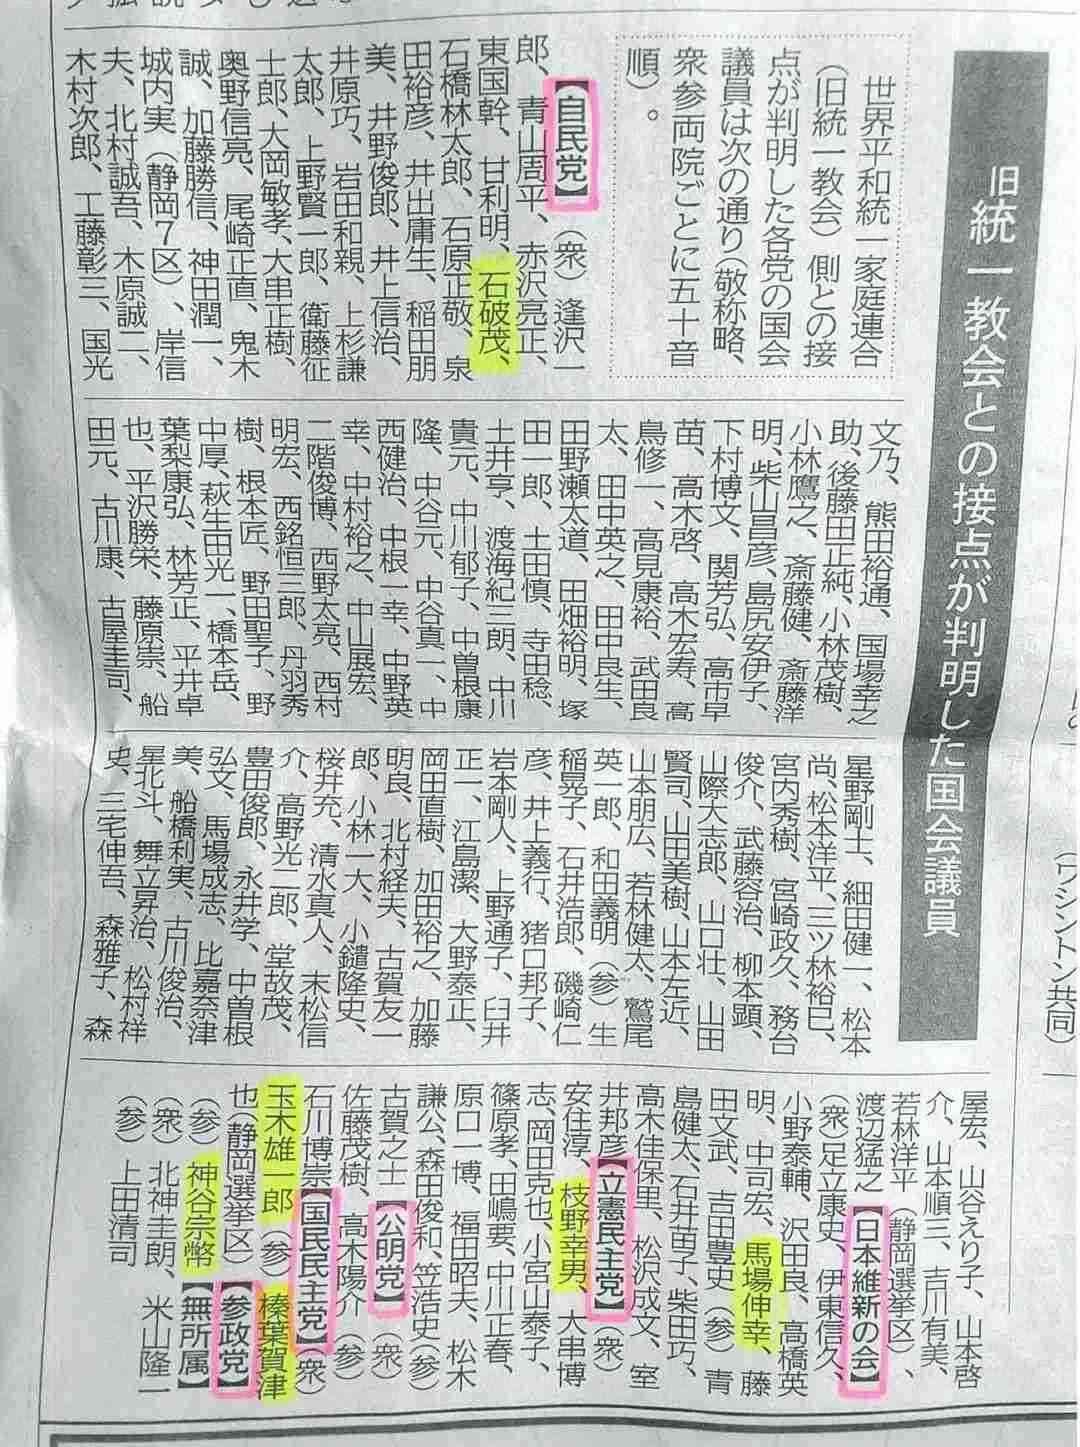 旧統一教会との接点が判明した国会議員
世界平和統一家庭連合
（旧統一教会）側との接
点が判明した各党の国会
議員は次の通り（敬称略、
衆参両院ごとに五十音
順）。
【自民党】（衆）逢沢一
郎、青山周平、赤沢亮正、
東国幹、甘利明、石破茂、
石橋林太郎、石原正敬、泉
田裕彦、井出庸生、稲田朋
美、井野俊郎、井上信治、
井原巧、岩田和親、上杉謙
太郎、上野賢一郎、衛藤征
士郎、大岡敏孝、大串正樹、
奥野信亮、尾崎正直、鬼木
誠、加藤勝信、神田潤一、
城内実（静岡7区）、岸信
夫、北村誠吾、木原誠二、
木村次郎、工藤彰三、国光
文乃、熊田裕通、国場幸之
助、後藤田正純、小林茂樹、
小林鷹之、斎藤健、斎藤洋
明、柴山昌彦、島尻安伊子、
下村博文、関芳弘、高市早
苗、高木啓、高木宏寿、高
鳥修一、高見康裕、武田良
太、田中英之、田中良生、
田野瀬太道、田畑裕明、塚
田一郎、土田慎、寺田稔、
土井亨、渡海紀三朗、中川
貴元、中川郁子、中曽根康
隆、中谷元、中谷真一、中
西健治、中根一幸、中野英
幸、中村裕之、中山展宏、
二階俊博、西野太亮、西村
明宏、西銘恒三郎、丹羽秀
樹、根本匠、野田聖子、野
中厚、萩生田光一、橋本岳、
葉梨康弘、林芳正、平井卓
也、平沢勝栄、藤原崇、船
田元、古川康、古屋圭司、
星野剛士、細田健一、松本
尚、松本洋平、三ツ林裕巳、
宮内秀樹、宮崎政久、務台
俊介、武藤容治、柳本顕、
山際大志郎、山口壮、山田
賢司、山田美樹、山本左近、
山本朋広、若林健太、鷲尾
英一郎、和田義明（参）生
稲晃子、石井浩郎、磯崎仁
彦、井上義行、猪口邦子、
岩本剛人、上野通子、臼井
正一、江島潔、大野泰正、
岡田直樹、加田裕之、加藤
明良、北村経夫、古賀友一
郎、小林一大、小鑓隆史、
桜井充、清水真人、末松信
介、高野光二郎、堂故茂、
豊田俊郎、永井学、中曽根
弘文、馬場成志、比嘉奈津
美、船橋利実、古川俊治、
星北斗、舞立昇治、松村祥
史、三宅伸吾、森雅子、森
屋宏、山谷えり子、山本啓
介、山本順三、吉川有美、
若林洋平（静岡選挙区）、
渡辺猛之【日本維新の会】
（衆）足立康史、伊東信久、
小野泰輔、沢田良、高橋英
明、中司宏、馬場伸幸、藤
田文武、吉田豊史（参）青
島健太、石井苗子、柴田巧、
高木佳保里、松沢成文、室
井邦彦【立憲民主党】（衆）
安住淳、枝野幸男、大串博
志、岡田克也、小宮山泰子、
篠原孝、田嶋要、中川正春、
原口一博、福田昭夫、松木
謙公、森田俊和、笠浩史（参）
古賀之士【公明党】（衆）
佐藤茂樹、高木陽介（参）
石川博崇【国民民主党】（衆）
玉木雄一郎（参）榛葉賀津
也（静岡選挙区）【参政党】
（参）神谷宗幣【無所属】
（衆）北神圭朗、米山隆一
（参）上田清司
（ワシントン共同）